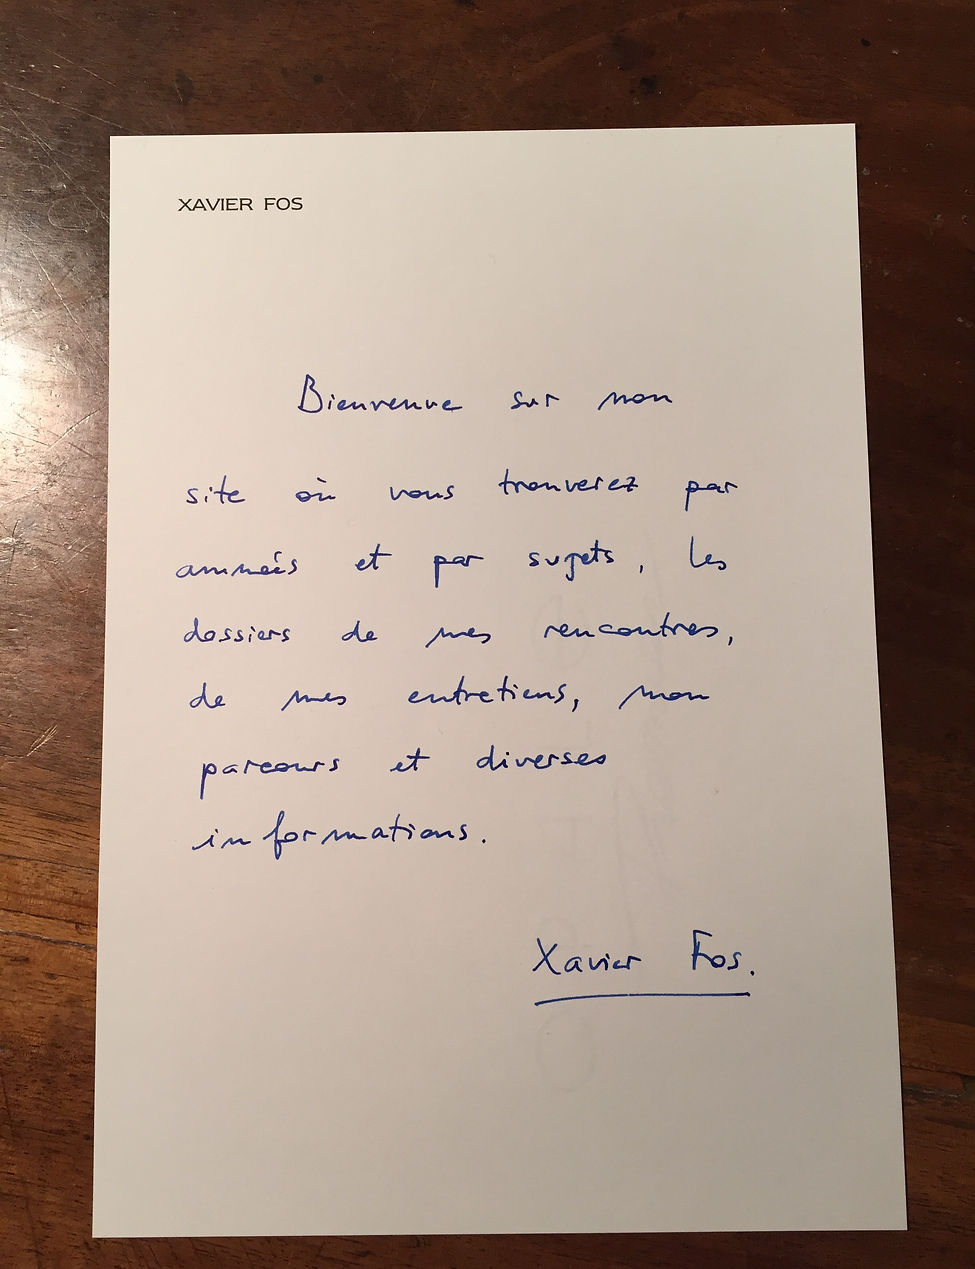 XAVIER FOS
Bienvenue sur mon
site où vous trouverez par
années et par sujets, les
dossiers de mes rencontres,
de mes entretiens, mon
parcours et diverses
informations.
Xavier Fos.